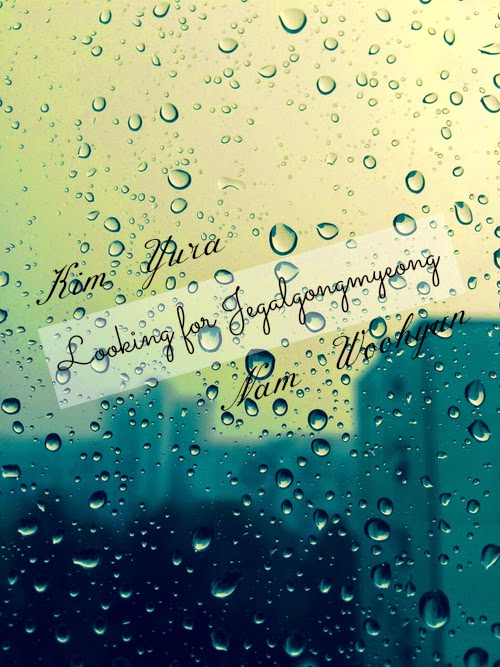 Kim Yura
Looking for Jegalgongmyeong
Nam Woohyun